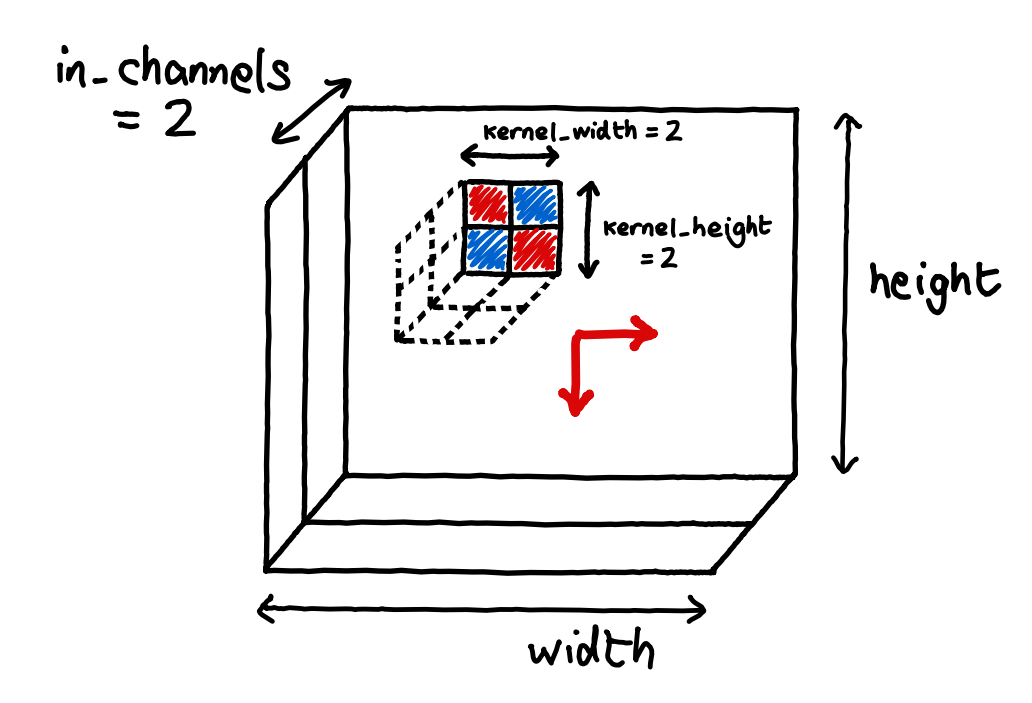 in_channels
= 2
kernel_width = 2
kernel_height
= 2
height
width